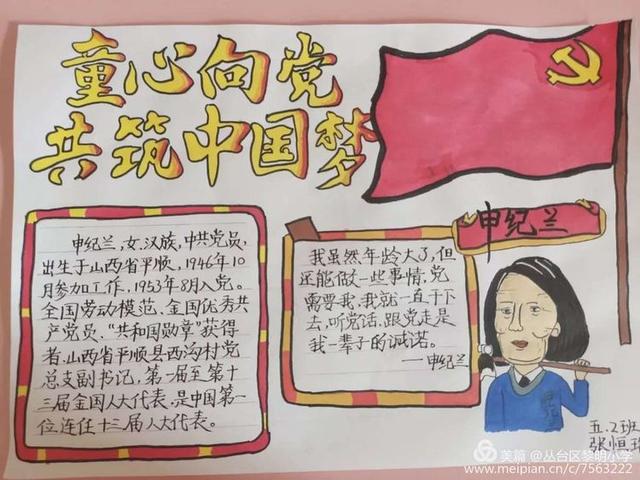 童心向党
共筑中国梦
申纪兰
申纪兰,女,汉族,中共党员,
出生于山西省平顺,1946年10
月参加工作,1953年8月入党。
全国劳动模范、全国优秀共
产党员、“共和国勋章”获得
者,山西省平顺县西沟村党
总支副书记,第一届至第十
三届全国人大代表,是中国第一
位连任十三届人大代表。
我虽然年龄大了,但
还能做一些事情,党
需要我,我就一直干下
去,听党话、跟党走是
我一辈子的诚诺。
——申纪兰
五.2班
张恒
美篇 @丛台区黎明小学
www.meipian.cn/c/7563222